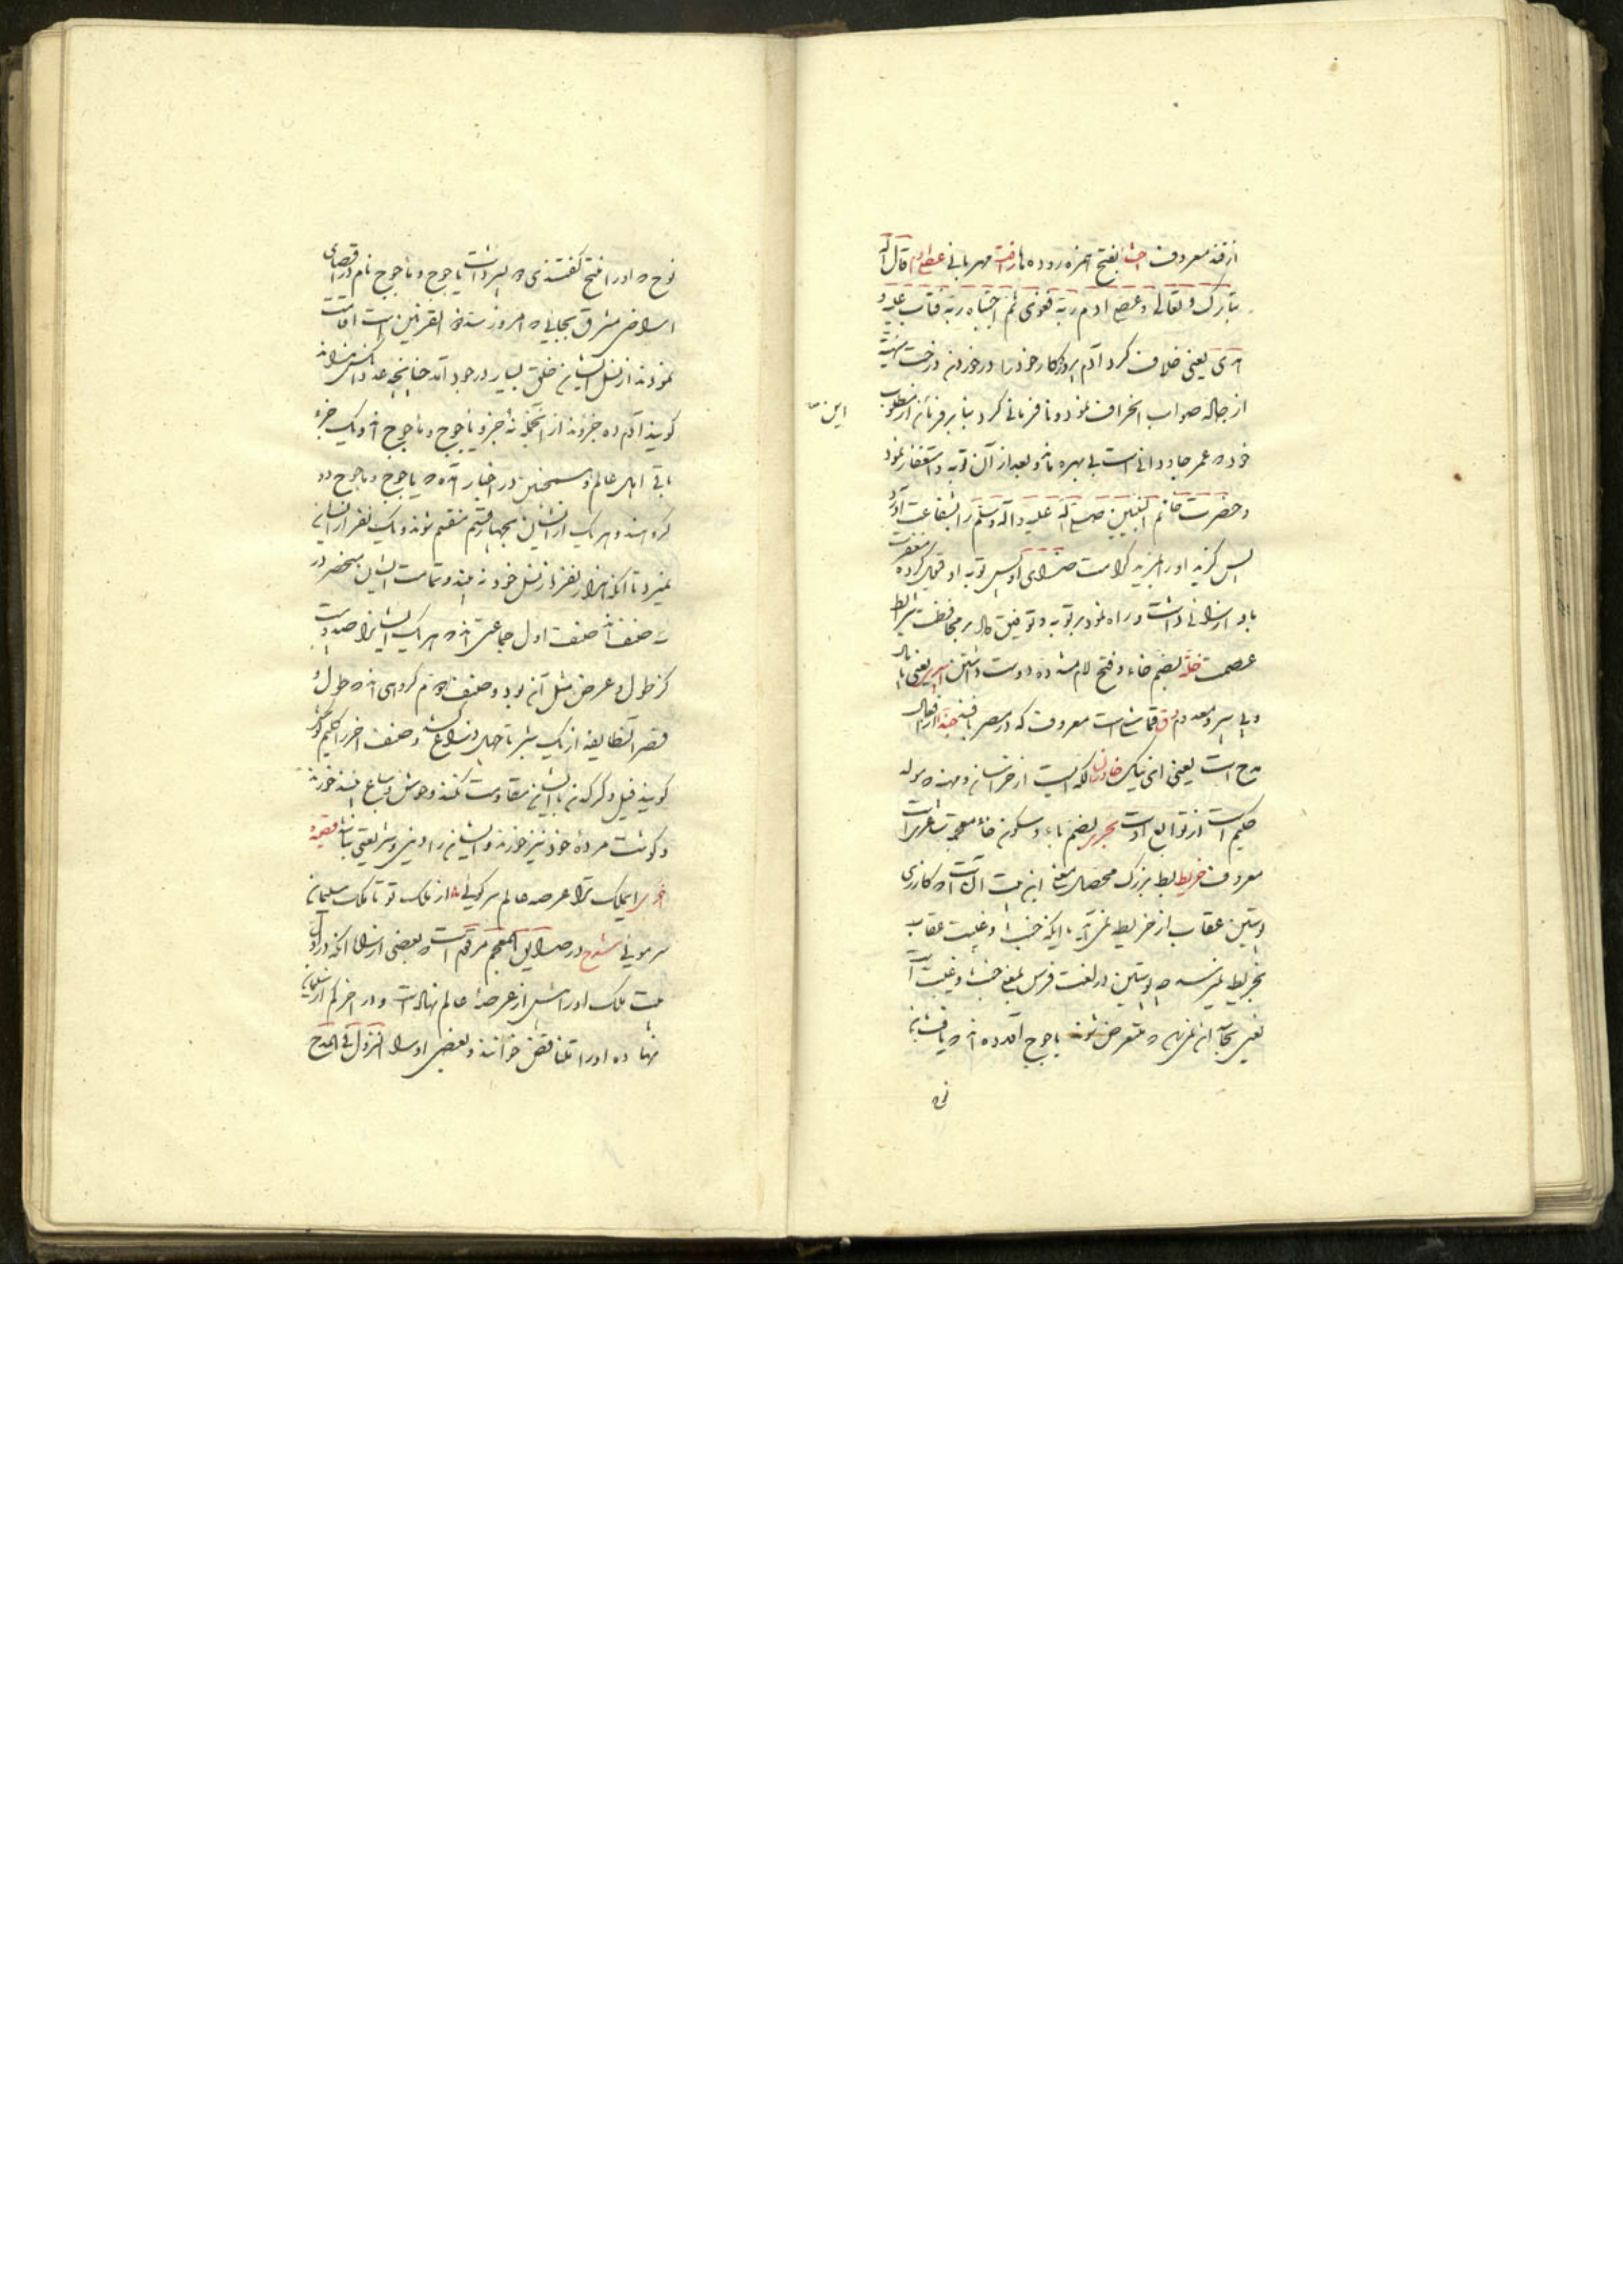 از قند معروف احشا بفتح همزه روده ها رافت مهربانی عصی ادم قال الله
تبارک و تعالی و عصی ادم ربه فغوی ثم اجتباه ربه فتاب علیه و
هدی یعنی خلاف کرد آدم پروردکار خود را در خوردن درخت منهیه
از جاده صواب انحراف نمود و نافرمانی کرد بنابر فرمان از مطلوب
خود که عمر جاودانی است بی بهره ماند و بعد از آن توبه و استغفار نمود
و حضرت خاتم النبیین صلی الله علیه و آله و سلم را بشفاعت آورد
پس کزید او را بمزید کرامت خدای او پس توبه او قبول کرده مغفرت
باو ارزانی داشت و راه نمود بر توبه و توفیق داد بر محافظت شرایط
عصمت خله بضم خاء و فتح لام مشدده دوست داشتن یعنی
و بی سر و معدوم دق قماشی است معروف که در مصر بافند حبذا از افعال
مدح است یعنی ای نیک خاوران ملکیست از خراسان و مهنه که مولد
حکیم است از توابع اوست بحتری بضم باء و سکون خاء معجمه شاعریست
معروف خربط بط بزرک محصل معنی این بیت آن است که کارزی
پوستین عقاب از خربط نمی آید با آنکه خبث و غیبت عقاب
بخربط نمیرسد چه پوستین در لغت فرس بمعنی خبث و غیبت است
یعنی بجای آن نمی رسد که متعرض شوند یاجوج آورده اند که یافث بن
این
نوح که او را فتح گفتندی که پسر داشت یاجوج و ماجوج نام در اقصای
اراضی مشرق بجایی که امروز سد ذو القرنین است اقامت
نمودند از نسل ایشان خلق بسیار در وجود آمد چنانچه عدد
کویند آدم ده جزوند از آنجمله نه جزو یاجوج و ماجوج اند و یک جزو
باقی اهل عالم و همچنین در اخبار آمده که یاجوج و ماجوج دو
کروهند و هر یک از ایشان بچهار قسم منقسم شوند و یک نفر از ایشان
نمیرد تا آنکه هزار نفر از نسل خود نه بیند و تمامت ایشان منحصر در
سه صنف اند صنف اول جماعتی اند که هر یک ایشانرا صد و بیست
کز طول و عرض مثل آن بود و صنف دوم کروهی اند که طول و
قصر آنطایفه از یک شبر تا چهل ذراع کشد و صنف اخر را کلیم کوش
کویند فیل و کرکدن با ایشان مقاومت نکند و وحوش و سباع خورند
و کوشت مرده خود نیز خورند و ایشان را دینی و شریعتی نباشد قصیده
اخری ای ملک ترا عرصه عالم سر کویی از ملک تو تا ملک سلیمان
سر مویی شرح در حدایق المعجم مرقوم است که بعضی از شعرا آنکه در اول
بیت ملک او را بیش از عرصه عالم نهادست و در اخر کم از سلیمان
نهاده او را تناقض خوانند و بعضی او را النزول فی المدح